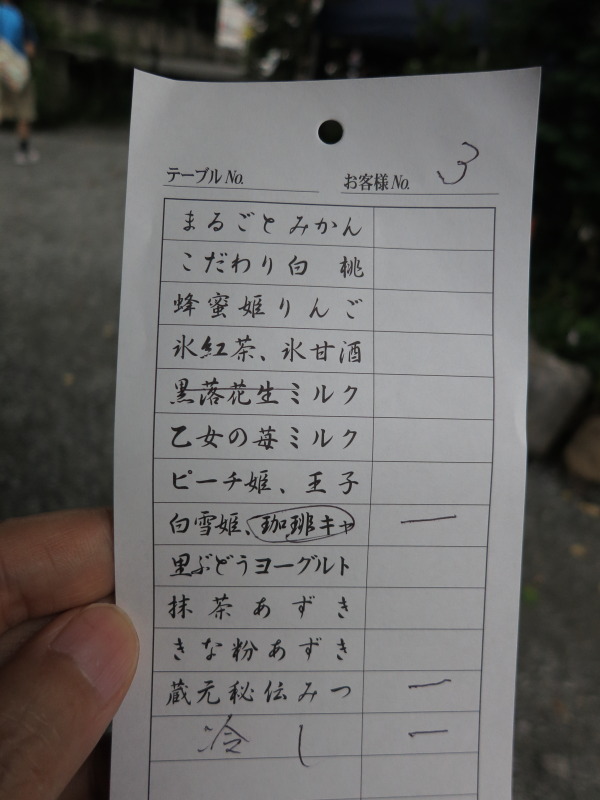 テーブルNo.　お客様No. 3
まるごとみかん
こだわり白　桃
蜂蜜姫りんご
氷紅茶、氷甘酒
黒落花生ミルク
乙女の苺ミルク
ピーチ姫、王子
白雪姫、珈琲キャ 一
里ぶどうヨーグルト
抹茶あずき
きな粉あずき
蔵元秘伝みつ 一
冷し 一